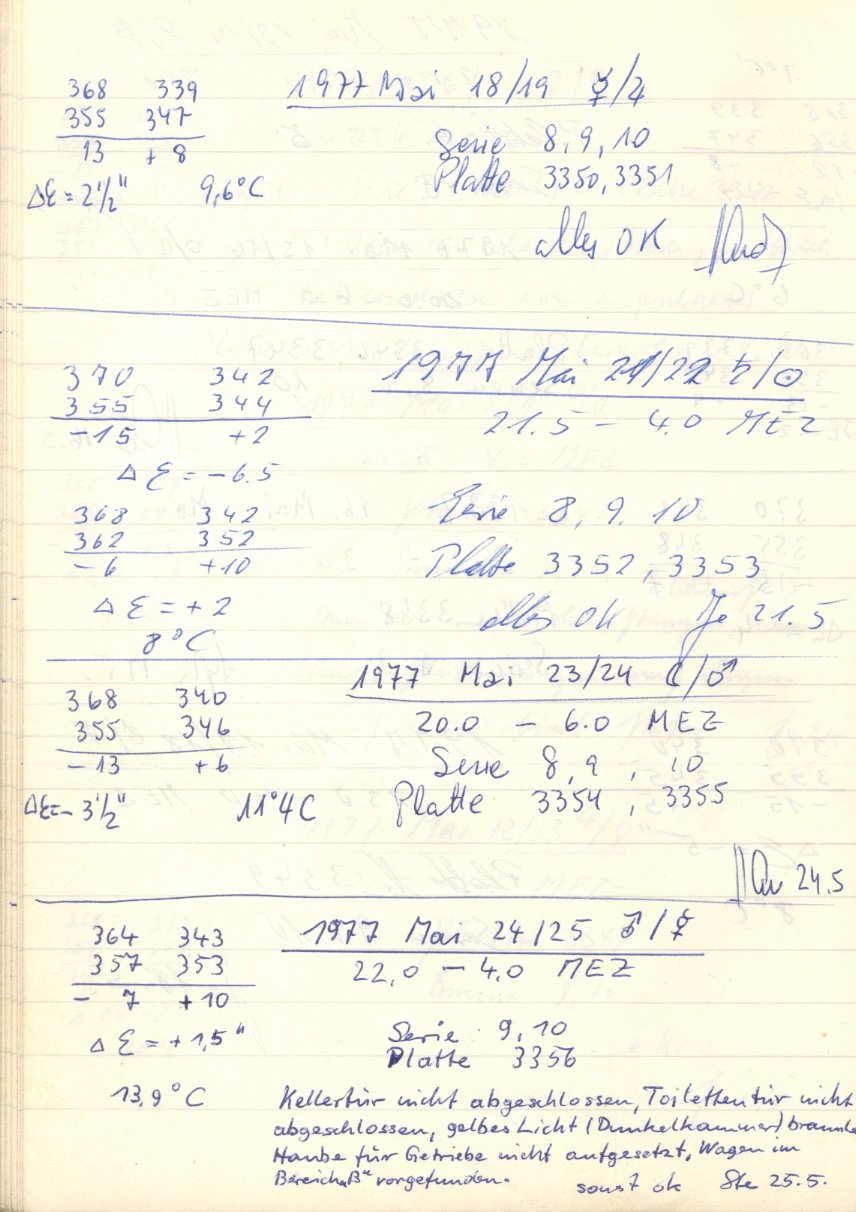 368 339
355 347
13 + 8
Δε = 2 1/2" 9,6°C
1977 Mai 18/19 ☿/♃
Serie 8, 9, 10
Platte 3350, 3351
alles OK
370 342
355 344
-15 +2
Δε = -6.5
368 342
362 352
-6 +10
Δε = +2
8°C
1977 Mai 21/22 ♄/☉
21.5 - 4.0 MEZ
Serie 8, 9, 10
Platte 3352, 3353
alles OK Je 21.5
368 340
355 346
-13 +6
Δε = -3 1/2" 11°4C
1977 Mai 23/24 ☾/♂
20.0 - 6.0 MEZ
Serie 8, 9, 10
Platte 3354, 3355
24.5
364 343
357 353
- 7 +10
Δε = +1,5"
13,9°C
1977 Mai 24/25 ♂/☿
22,0 - 4.0 MEZ
Serie 9, 10
Platte 3356
Kellertür nicht abgeschlossen, Toilettentür nicht
abgeschlossen, gelbes Licht (Dunkelkammer) brannte
Haube für Getriebe nicht aufgesetzt, Wagen im
Bereich „B" vorgefunden.
sonst ok Ste 25.5.